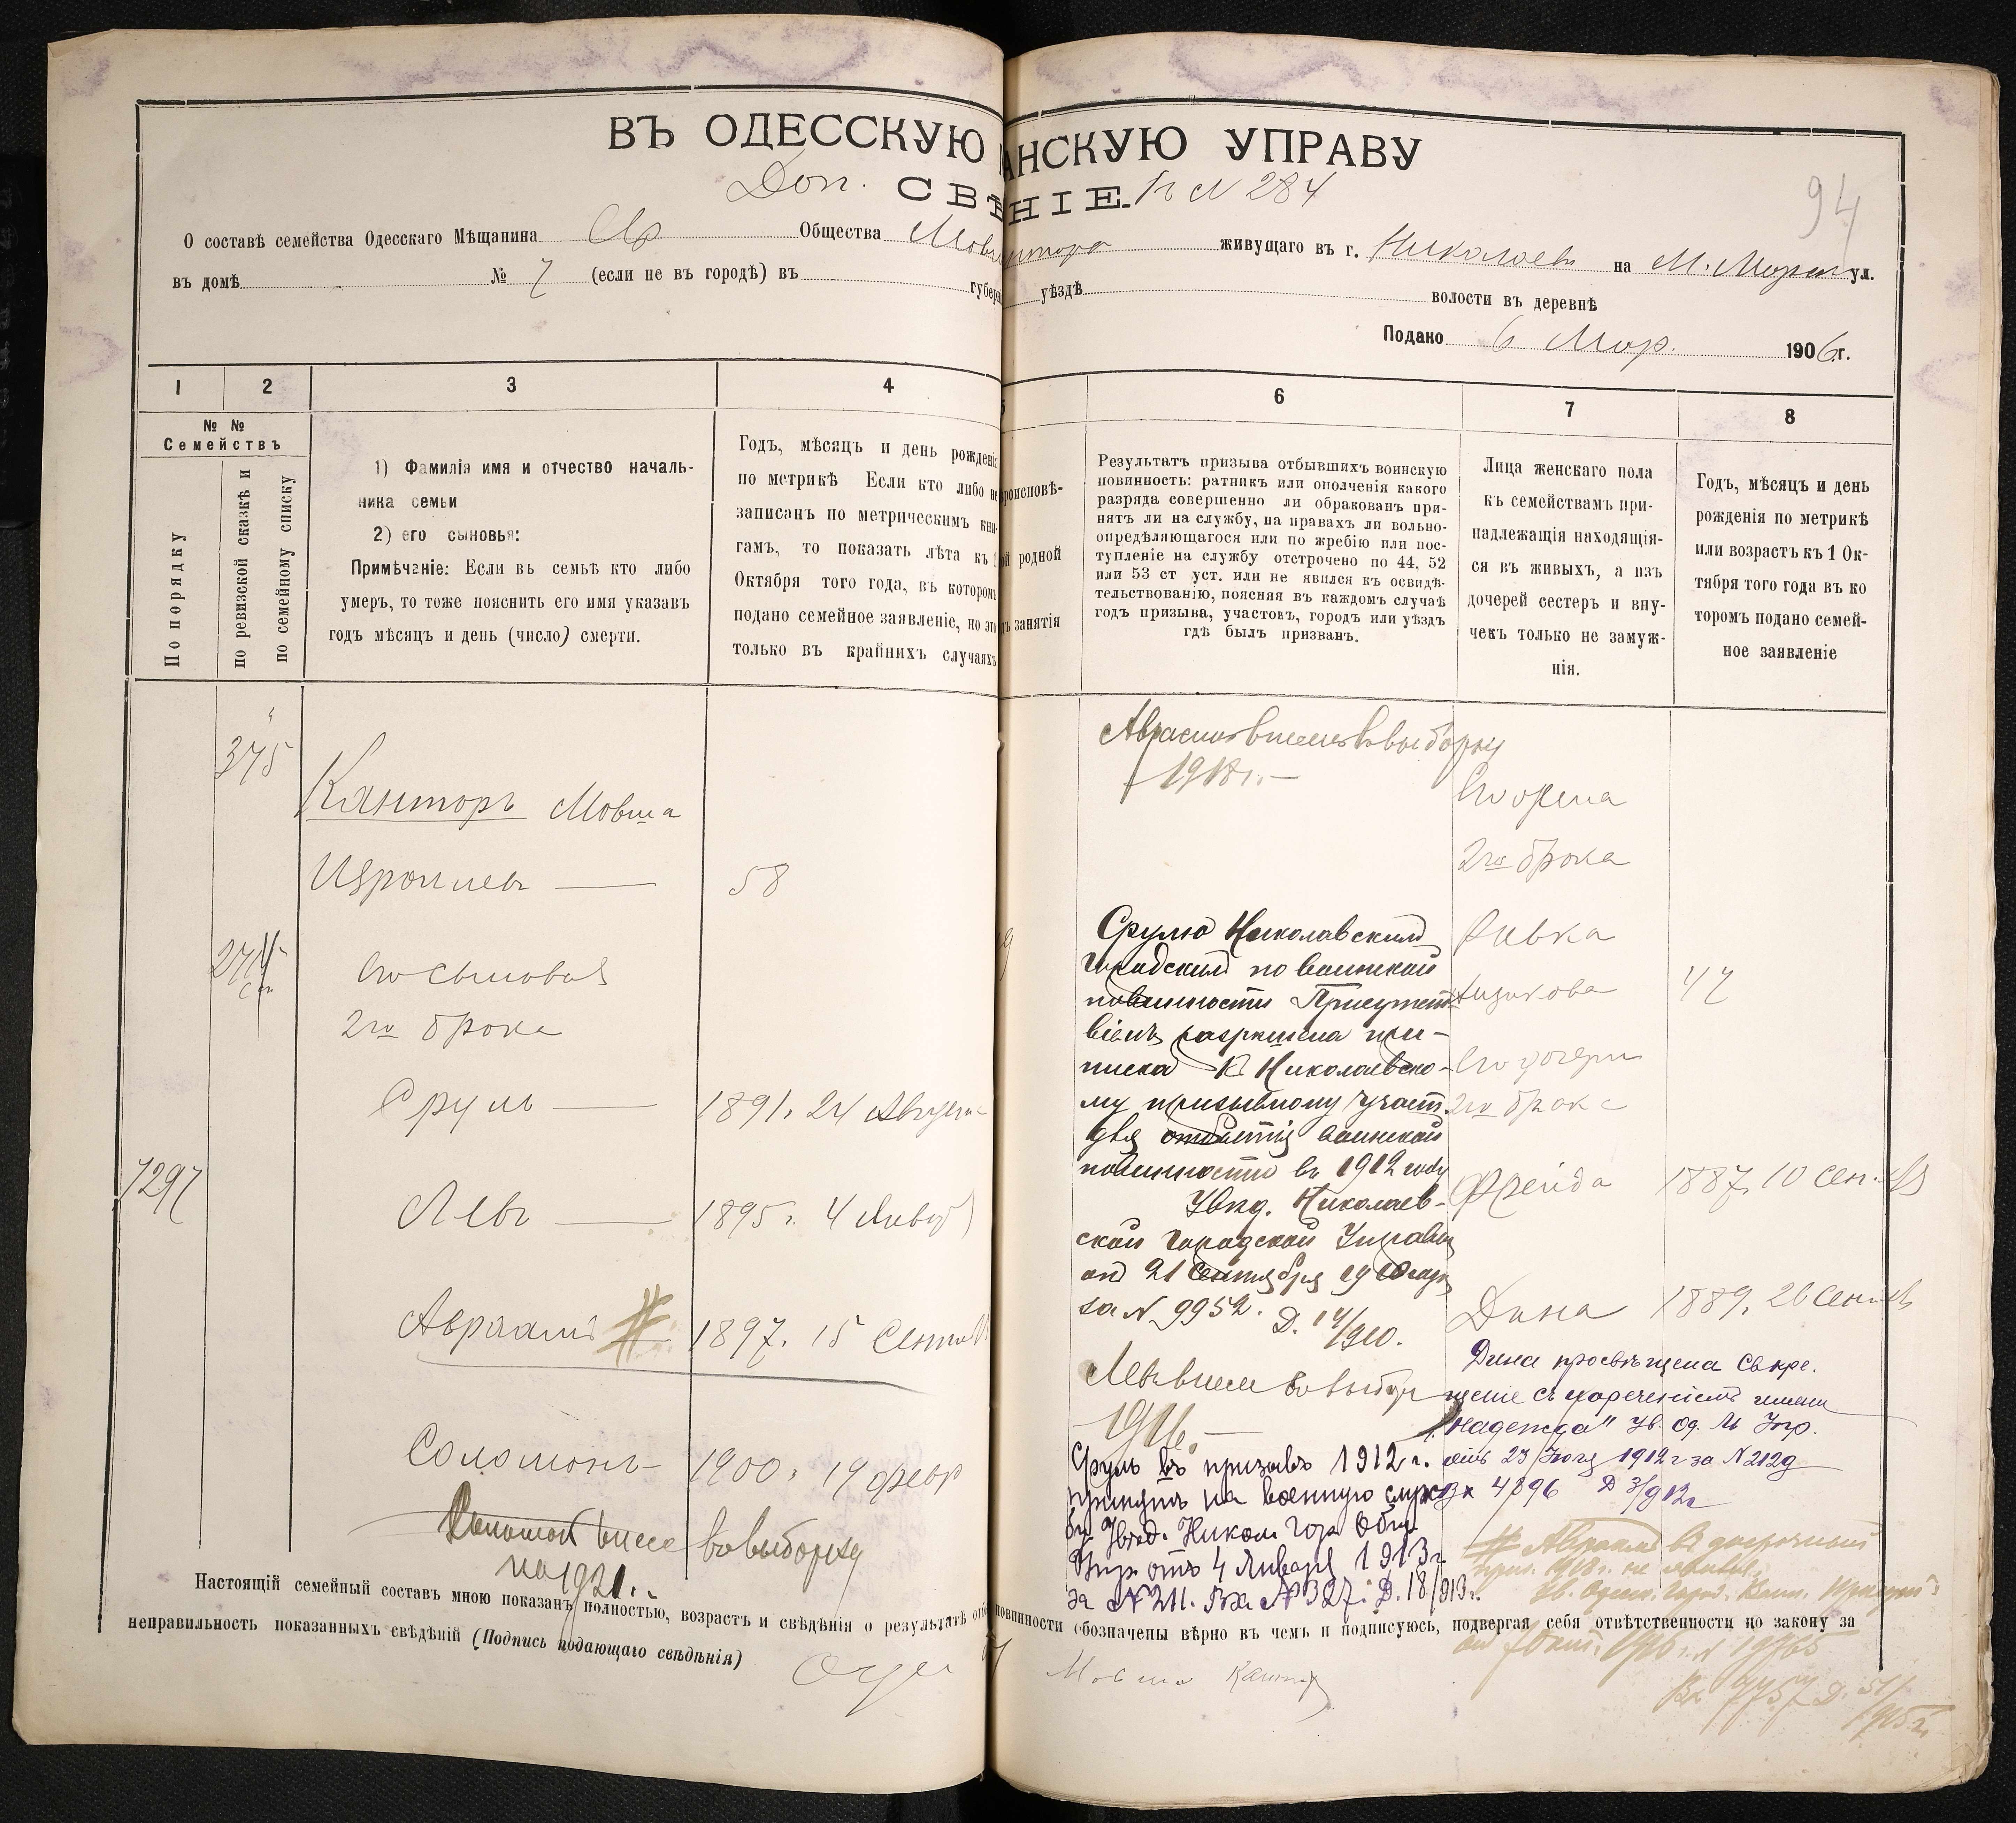 ВЪ ОДЕССКУЮ АНСКУЮ УПРАВУ
Доп. СВѢНІЕ. къ N 284
94
О составѣ семейства Одесскаго Мѣщанина Общества живущаго въ г. Николаевѣ на М. Морск ул.
въ домѣ № 7 (если не въ городѣ) въ губерн уѣздѣ волости въ деревнѣ
Подано 6 Мар. 1906 г.
1 2 3 4 5 6 7 8
№ №
Семействъ
По порядку
по ревизской сказкѣ и
по семейному списку
1) Фамилія имя и отчество началь-
ника семьи
2) его сыновья:
Примѣчаніе: Если въ семьѣ кто либо
умеръ, то тоже пояснить его имя указавъ
годъ мѣсяцъ и день (число) смерти.
Годъ, мѣсяцъ и день рожденія
по метрикѣ Если кто либо не
записанъ по метрическимъ кни-
гамъ, то показать лѣта къ 1
Октября того года, въ которомъ
подано семейное заявленіе, но это
только въ крайнихъ случаяхъ
роисповѣ-
ой родной
ъ занятія
Результатъ призыва отбывшихъ воинскую
повинность: ратникъ или ополченія какого
разряда совершенно ли обракованъ при-
нятъ ли на службу, на правахъ ли вольно-
опредѣляющагося или по жребію или пос-
тупленіе на службу отстрочено по 44, 52
или 53 ст уст. или не явился къ освидѣ-
тельствованію, поясняя въ каждомъ случаѣ
годъ призыва, участокъ, городъ или уѣздъ
гдѣ былъ призванъ.
Лица женскаго пола
къ семействамъ при-
надлежащія находящія-
ся въ живыхъ, а изъ
дочерей сестеръ и вну-
чекъ только не замуж-
нія.
Годъ, мѣсяцъ и день
рожденія по метрикѣ
или возрастъ къ 1 Ок-
тября того года въ ко
торомъ подано семей-
ное заявленіе
375
Канторъ Мовша
Изроилевъ — 58
Его сыновья
2го брака
Сруль — 1891. 24 Августа
7297
Левъ — 1895 г. 4 Января
Авраамъ # 1897. 15 Сентяб
Соломонъ — 1900. 14 февр
Соломонъ внесе во выборку
на 1921 г.
Авраамъ внесенъ во выборку
1918 г. —
Срулю Николаевскимъ
Городскимъ по воинской
повинности Присутст-
віемъ разрѣшена при-
писка к Николаевско-
му призывному участ.
для отбытія воинской
повинности въ 1912 году
Увѣд. Николаев-
ской Городской Управы
от 21 Сентября 1910 года
за N 9952. Д. 14/910.
Левъ внесе во выбор
1916. —
Сруль въ призывъ 1912 г.
принятъ на военную служ
бу Увѣд. Никол Гор Общ
Упр. отъ 4 Января 1913 г.
за № 211. Вх № 327. Д. 18/913 г.
Его жена
2го брака
Ривка
47
Его дочери
2го брака
Фрейда 1887. 10 Сен.
Дина 1889. 26 Сентяб
Дина просвѣщена Св. кре-
щеніе съ нареченіемъ имени
"Надежда" Ув. Од.
отъ 23 1912 г за N 2129
Вх 4896 Д 3/912 г
# Авраамъ въ досрочный
приз. 1918 г. не явился.
Ув. Одесск. Город.
Вх Д.
Настоящій семейный составъ мною показанъ полностью, возрастъ и свѣдѣнія о результатѣ отб повинности обозначены вѣрно въ чемъ и подписуюсь, подвергая себя отвѣтственности по закону за
неправильность показанныхъ свѣдѣній (Подпись подающаго свѣдѣнія)
Мовша Кантор